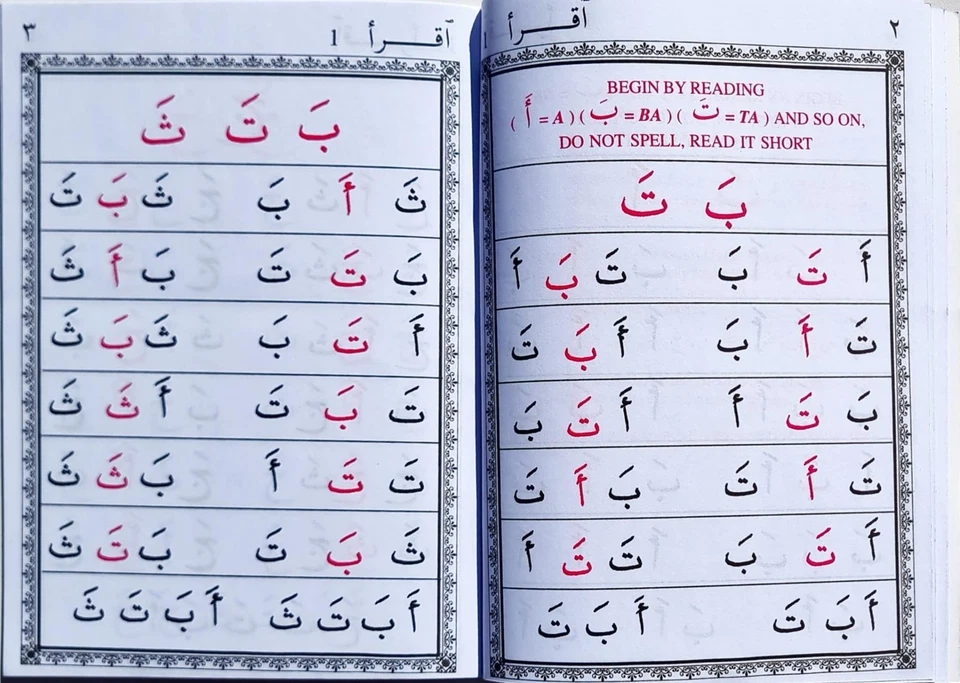 ٢ أقـــرأ 1
BEGIN BY READING
( أَ = A ) ( بَ = BA ) ( تَ = TA ) AND SO ON,
DO NOT SPELL, READ IT SHORT
بَ تَ
أَ تَ بَ تَ بَ أَ
تَ أَ بَ أَ بَ تَ
بَ تَ أَ أَ تَ بَ
تَ أَ تَ بَ أَ تَ
أَ تَ بَ تَ تَ أَ
أَ بَ تَ أَ بَ تَ
أقـــرأ 1 ٣
بَ تَ ثَ
ثَ أَ بَ ثَ بَ تَ
بَ تَ تَ بَ أَ ثَ
أَ تَ بَ ثَ بَ ثَ
تَ بَ تَ أَ ثَ ثَ
تَ تَ أَ بَ ثَ ثَ
ثَ بَ تَ بَ تَ ثَ
أَ بَ تَ ثَ أَ بَ تَ ثَ